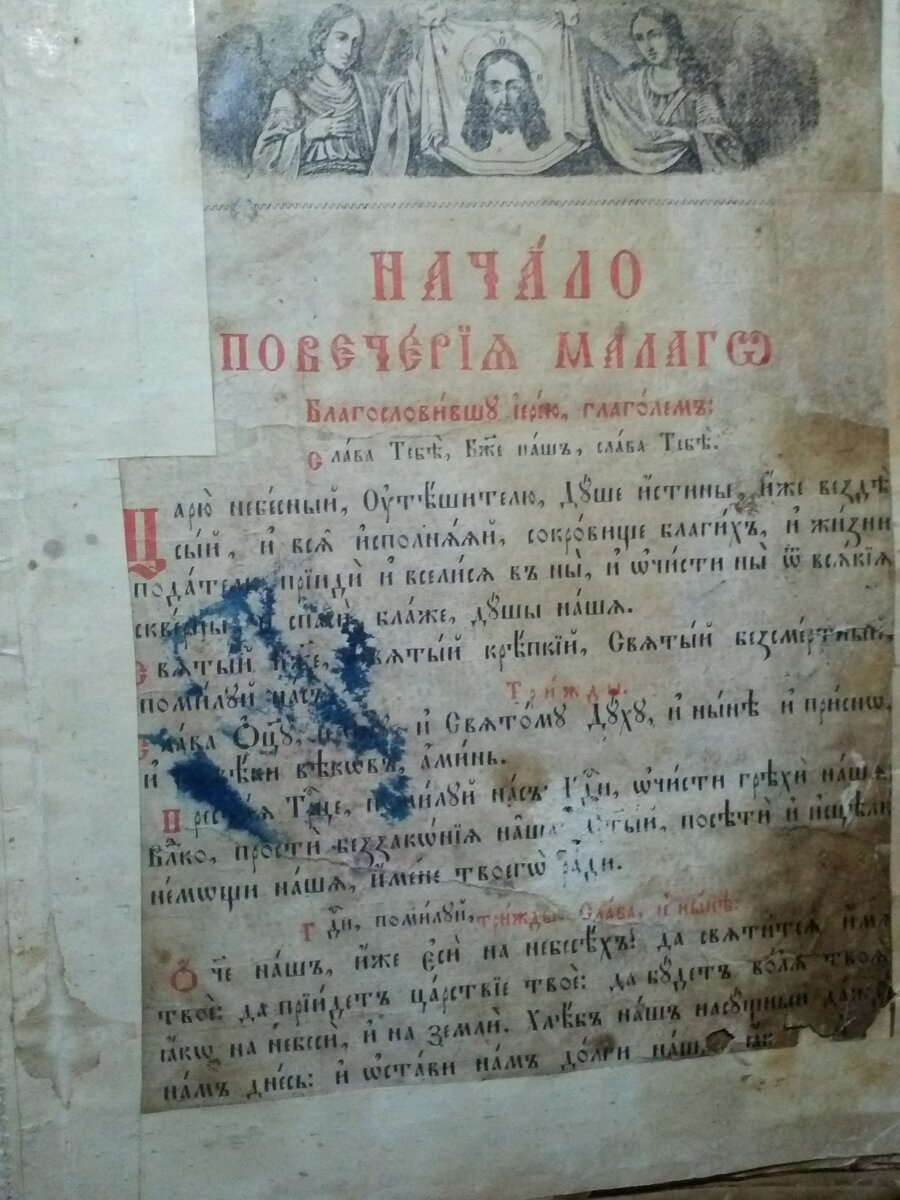 НАЧА́ЛО
ПОВЕЧЕ́РЇѦ МАЛАГѠ
Благослови́вшꙋ і҆ере́ю, глаго́лемъ:
Сла́ва Тебѣ̀, Бж҃е на́шъ, сла́ва Тебѣ̀.
Царю̀ небе́сный, Оу҆тѣ́шителю, Дꙋ́ше и҆́стины, и҆́же вездѣ̀
сы́й, и҆ всѧ̑ и҆сполнѧ́ѧй, сокро́вище благи́хъ, и҆ жи́зни
пода́телю, прїидѝ и҆ всели́сѧ въ ны̀, и҆ ѡ҆чи́сти ны̀ ѿ всѧ́кїѧ
скве́рны, и҆ спасѝ, бла́же, дꙋ́шы на́шѧ.
Свѧты́й Бж҃е, Свѧты́й крѣ́пкїй, Свѧты́й безсме́ртный,
поми́лꙋй на́съ. Три́жды.
Сла́ва Ѻ҆ц҃ꙋ̀, и҆ Свѧто́мꙋ Дꙋ́хꙋ, и҆ ны́нѣ и҆ при́снѡ,
и҆ вѣ́ки вѣкѡ́въ, а҆ми́нь.
Прест҃а́ѧ Трⷪ҇це, поми́лꙋй на́съ: Гдⷭ҇и, ѡ҆чи́сти грѣхѝ на́шѧ:
Влⷣко, простѝ беззакѡ́нїѧ на̑ша: Ст҃ы́й, посѣтѝ и҆ и҆сцѣлѝ
не́мѡщи на́шѧ, и҆́мене твоегѡ̀ ра́ди.
Гдⷭ҇и, поми́лꙋй, три́жды. Сла́ва, и҆ ны́нѣ:
Ѻ҆́ч҃е на́шъ, и҆́же є҆сѝ на небесѣ́хъ! да свѧти́тсѧ и҆́мѧ
твоѐ: да прїи́детъ ца́рствїе твоѐ: да бꙋ́детъ во́лѧ твоѧ̀
ꙗ҆́кѡ на небесѝ, и҆ на землѝ. Хлѣ́бъ на́шъ насꙋ́щный да́ждь
на́мъ дне́сь: и҆ ѡ҆ста́ви на́мъ до́лги на́шѧ